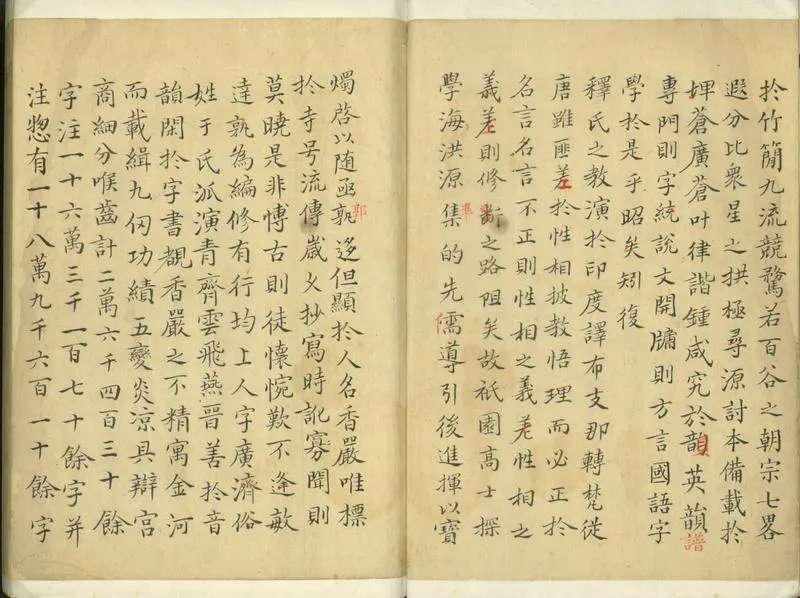 扵竹簡九流競騖若百谷之朝宗七畧
遐分比衆星之拱極尋源討本備載扵
埤蒼廣蒼叶律諧鍾咸究扵韻英韻譜
專門則字統說文開牖則方言國語字
學扵是乎昭矣矧復
釋氏之教演扵印度譯布支那轉梵從
唐雖匪差扵性相披教悟理而必正扵
名言名言不正則性相之義差性相之
義差則修斷之路阻矣故祇園高士探
學海洪源集的先儒導引後進揮以寶
準
儒
燭啓以随亟孰迻但顯扵人名香嚴唯標
郭
扵寺号流傳歲久抄寫時訛寡聞則
莫曉是非博古則徒懷惋歎不逢敏
達孰為編修有行均上人字廣濟俗
姓于氏派演青齊雲飛燕晉善扵音
韻閑扵字書覩香嚴之不精寓金河
而載緝九仭功績五變炎凉具辯宮
商細分喉齒計二萬六千四百三十餘
字注一十六萬三千一百七十餘字并
注惣有一十八萬九千六百一十餘字